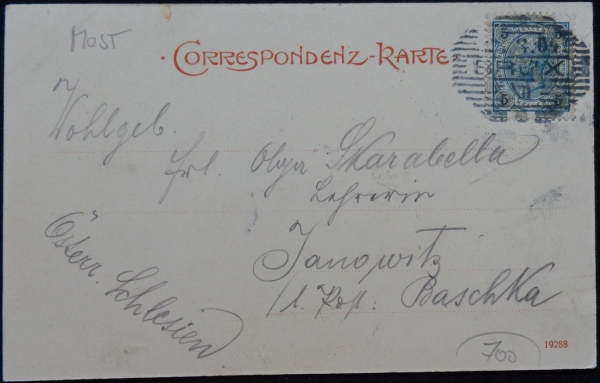 MOST
CORRESPONDENZ-KARTE
5 5
04
5 5
Wohlgeb.
Frl. Olga Skarabella
Lehrerin
Janowitz
l. Post. Baschka
Österr. Schlesien
19288
700